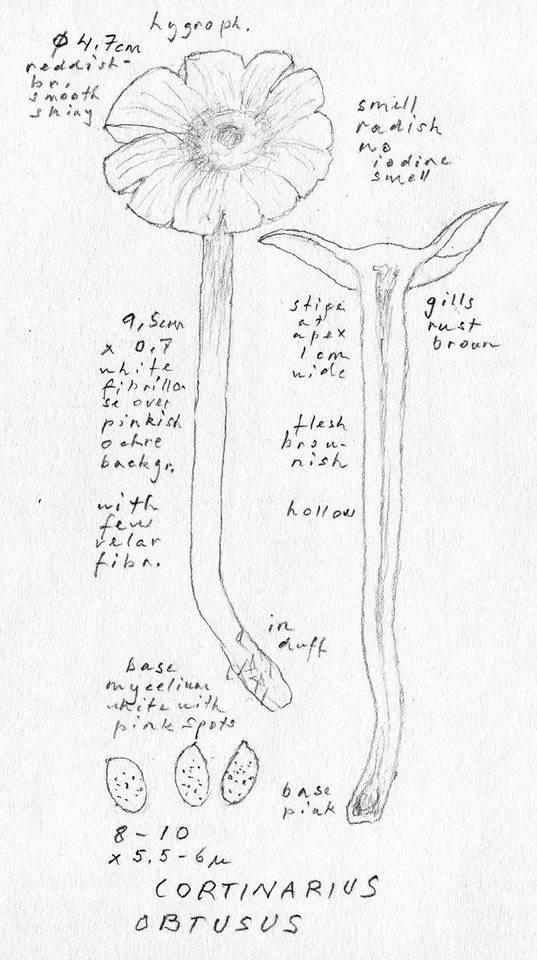 hygroph.
Ø 4.7cm
reddish-
br.
smooth
shiny
smell
radish
no
iodine
smell
9,5cm
x 0.7
white
fibrillo-
se over
pinkish
ochre
backgr.
with
few
velar
fibr.
stipe
at
apex
1 cm
wide
gills
rust
brown
flesh
brow-
nish
hollow
in
duff
base
mycelium
white with
pink spots
base
pink
8 - 10
x 5,5 - 6 µ
CORTINARIUS
OBTUSUS